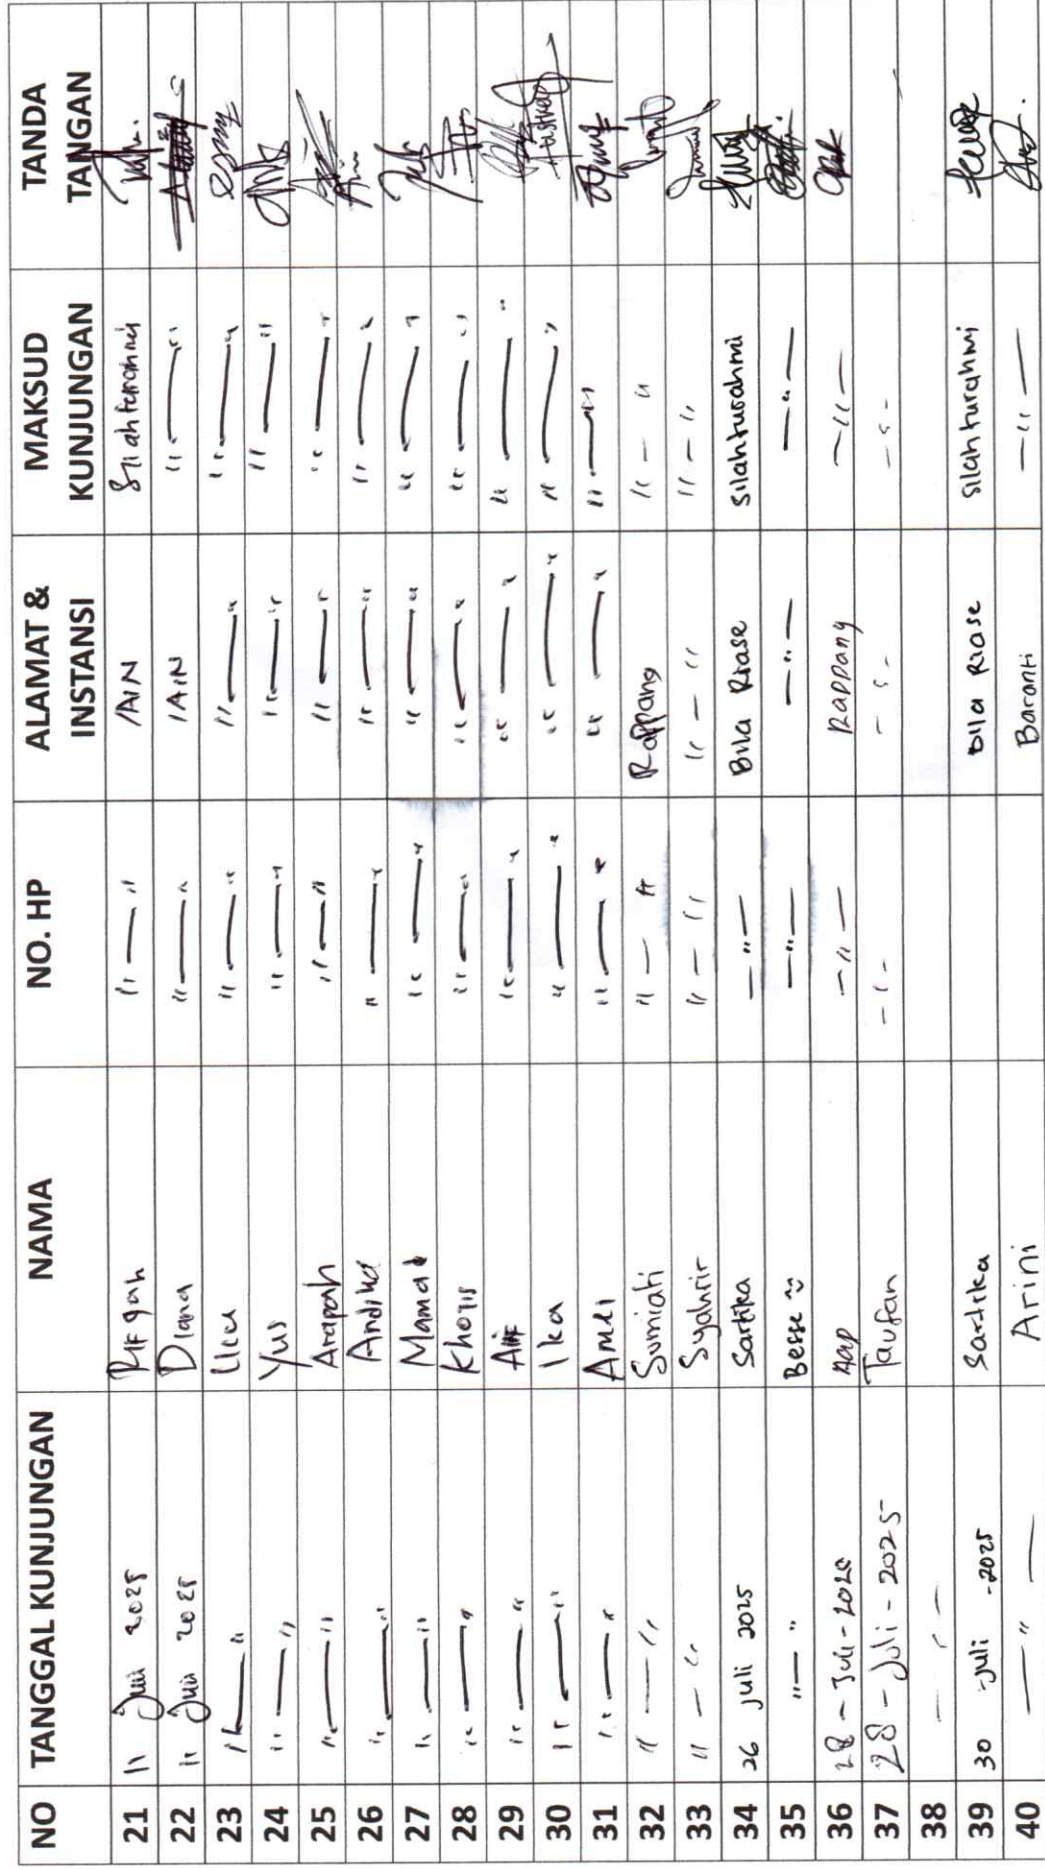 NO TANGGAL KUNJUNGAN NAMA NO. HP ALAMAT & INSTANSI MAKSUD KUNJUNGAN TANDA TANGAN
21 11 Juli 2025 Rifqah " — " IAIN Silahturahmi
22 11 Juli 2025 Diana " — " IAIN " — "
23 " — " Ucu " — " " — " " — "
24 " — " Yus " — " " — " " — "
25 " — " Arapah " — " " — " " — "
26 " — " Andika " — " " — " " — "
27 " — " Mamat " — " " — " " — "
28 " — " Kholis " — " " — " " — "
29 " — " Alif " — " " — " " — "
30 " — " Ika " — " " — " " — "
31 " — " Amel " — " " — " " — "
32 " — " Sumiati " — " Rappang " — "
33 " — " Syahrir " — " " — " " — "
34 26 juli 2025 Sartika — " — Bila Riase Silahturahmi
35 " — " Besse — " — — " — — " —
36 28 - Juli - 2025 Aap — " — Rappang — " —
37 28 - Juli - 2025 Taufan - " - - " - - " -
38 — " —
39 30 - Juli - 2025 Sartika Bila Riase Silahturahmi
40 — " — Arini Baranti — " —